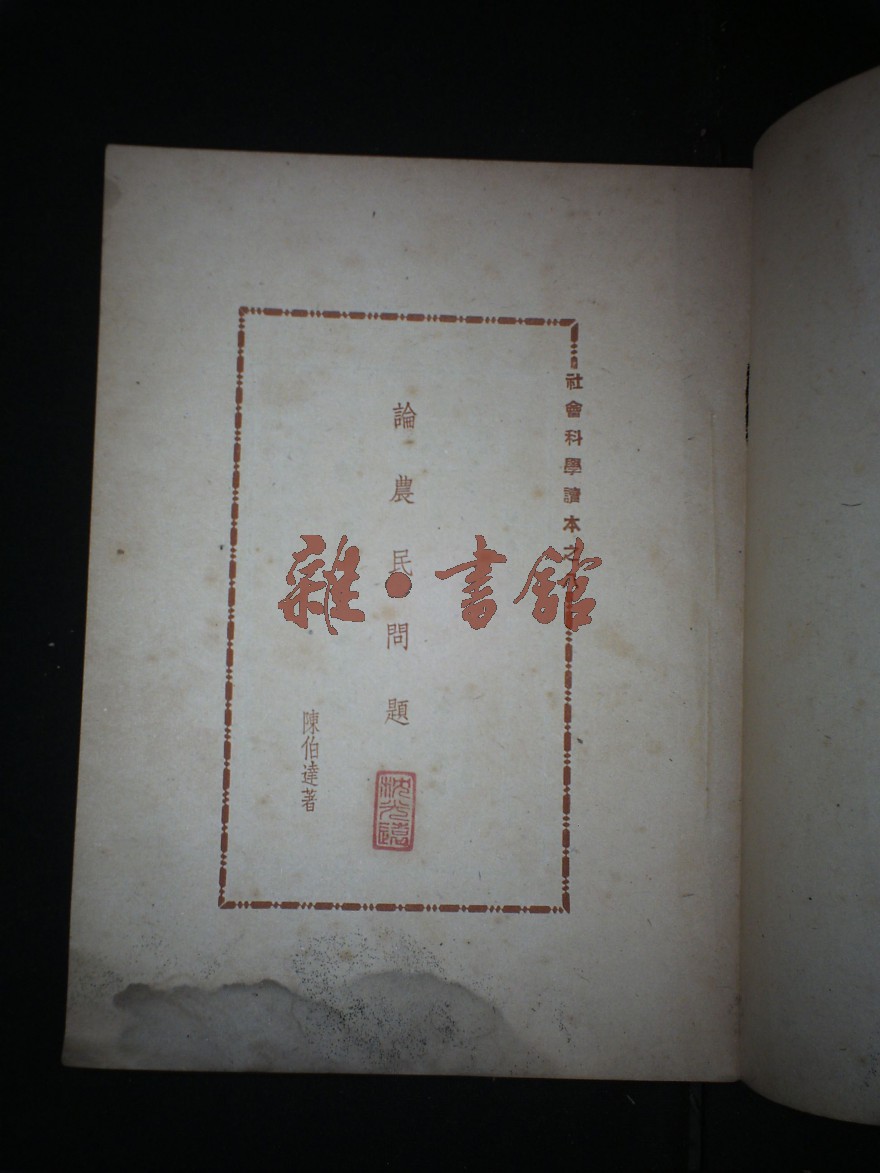 社會科學讀本之
論農民問題
陳伯達著
沈光遠
雜·書館